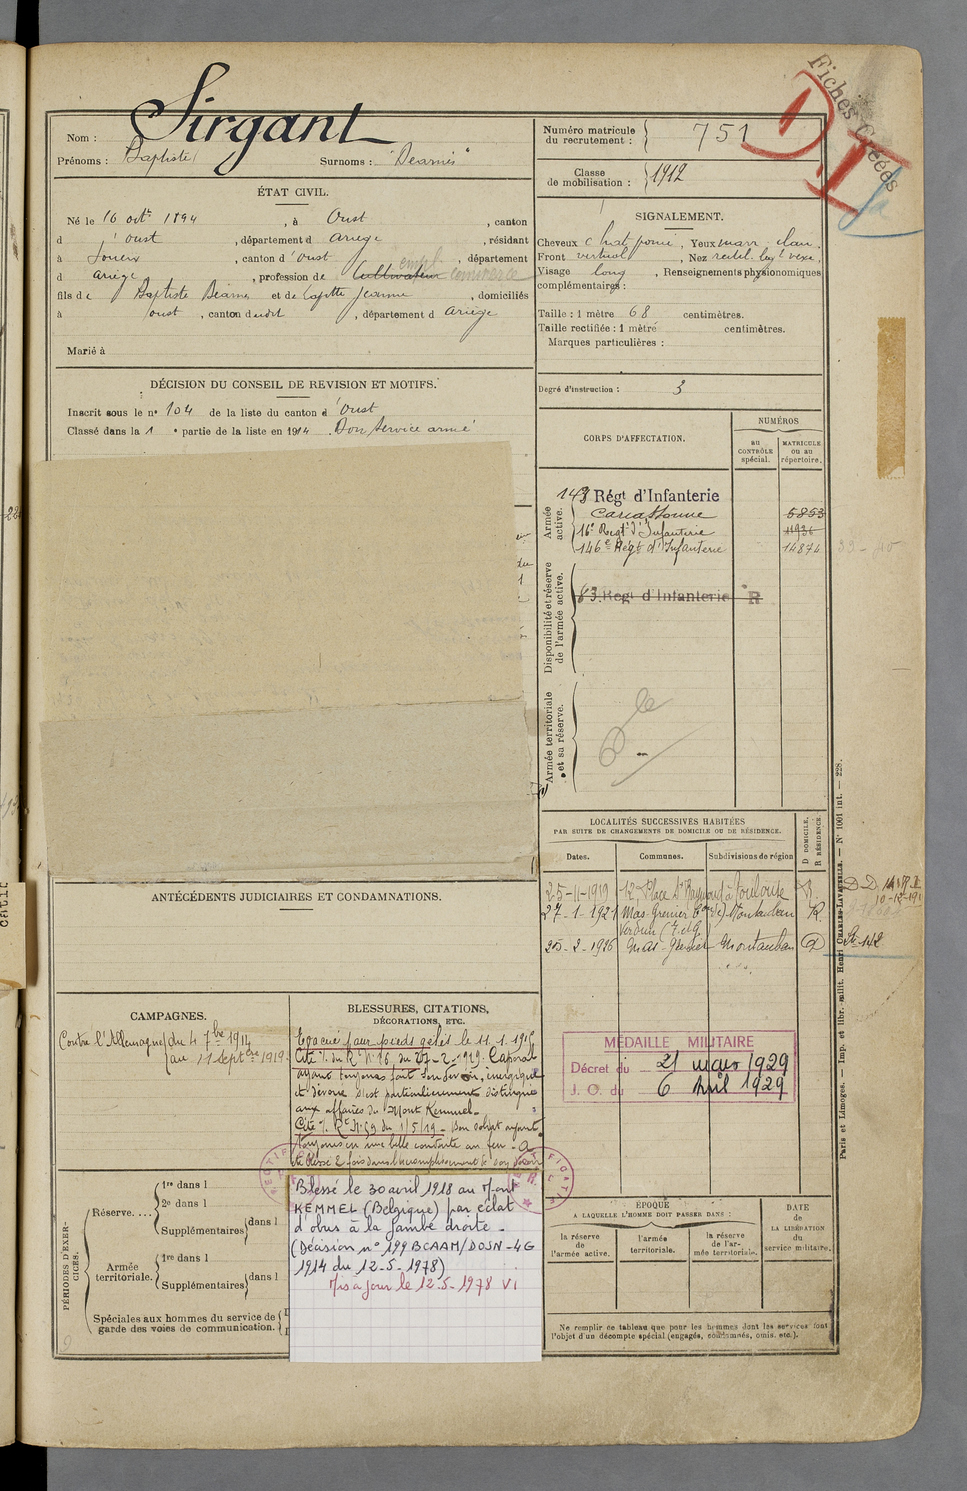 Fiches Créées
Nom : Sirgant
Prénoms : Baptiste Surnoms : "Dearnis"
Numéro matricule du recrutement : 751
Classe de mobilisation : 1912
ÉTAT CIVIL.
Né le 16 octe 1894, à Oust, canton
d'oust, département d Ariège, résidant
à Soueix, canton d'oust, département
d Ariège, profession de Cultivateur empl. commerce
fils de Baptiste Dearnis et de Lafitte Jeanne, domiciliés
à oust, canton dudit, département d Ariège
Marié à
SIGNALEMENT.
Cheveux chat foncé, Yeux marr. clair.
Front vertical, Nez rectil.
Visage long, Renseignements physionomiques
complémentaires :
Taille : 1 mètre 68 centimètres.
Taille rectifiée : 1 mètre centimètres.
Marques particulières :
Degré d'instruction : 3
DÉCISION DU CONSEIL DE REVISION ET MOTIFS.
Inscrit sous le n° 104 de la liste du canton d'Oust
Classé dans la 1e partie de la liste en 1914. Bon service armé
CORPS D'AFFECTATION.
NUMÉROS
au CONTRÔLE spécial.
MATRICULE ou au répertoire.
Armée active.
143 Régt d'Infanterie
Carcassonne 5853
16e Regt d'Infanterie 11936
146e Régt d'Infanterie 14874
Disponibilité et réserve de l'armée active.
83 Regt d'Infanterie R
Armée territoriale et sa réserve.
LOCALITÉS SUCCESSIVES HABITÉES
PAR SUITE DE CHANGEMENTS DE DOMICILE OU DE RÉSIDENCE.
Dates. Communes. Subdivisions de région
D DOMICILE. R RÉSIDENCE.
25-11-1919 12, Place St Raymond à Toulouse R.
27-1-1921 Mas-Grenier Con de Montauban R.
Verdun (T. et G.)
25-2-1926 Mas-Grenier Montauban D
ANTÉCÉDENTS JUDICIAIRES ET CONDAMNATIONS.
CAMPAGNES.
Contre l'Allemagne du 4 7bre 1914
au 11 Septbre 1919
BLESSURES, CITATIONS,
DÉCORATIONS, ETC.
Evacué pour pieds gelés le 11.1.1915
Cité O. du Rt N° 16 du 27-2-1919. Caporal
ayant toujours fait son devoir, énergique
et dévoué s'est particulièrement distingué
aux affaires du Mont Kemmel.
Cité O. Rt N° 59 du 1/5/19 - Bon soldat ayant
toujours eu une belle conduite au feu - A
été blessé 2 fois dans l'accomplissement de son devoir
RECTIFICATIF
Blessé le 30 avril 1918 au Mont
KEMMEL (Belgique) par éclat
d'obus à la jambe droite -
(Décision n° 199 BCAAM/DOSN-4G
1914 du 12-5-1978)
Mis à jour le 12-5-1978 VI
MÉDAILLE MILITAIRE
Décret du 21 mars 1929
J. O. du 6 Avril 1929
PÉRIODES D'EXERCICES.
Réserve....
1re dans l
2e dans l
Supplémentaires dans l
Armée territoriale.
1re dans l
Supplémentaires dans l
Spéciales aux hommes du service de
garde des voies de communication.
ÉPOQUE
A LAQUELLE L'HOMME DOIT PASSER DANS :
la réserve de l'armée active.
l'armée territoriale.
la réserve de l'armée territoriale.
DATE de LA LIBÉRATION du service militaire.
Ne remplir ce tableau que pour les hommes dont les services font
l'objet d'un décompte spécial (engagés, condamnés, omis, etc.).
Paris et Limoges. — Imp. et libr. milit. Henri CHARLES-LAVAUZELLE. — N° 1001 int. — 228.